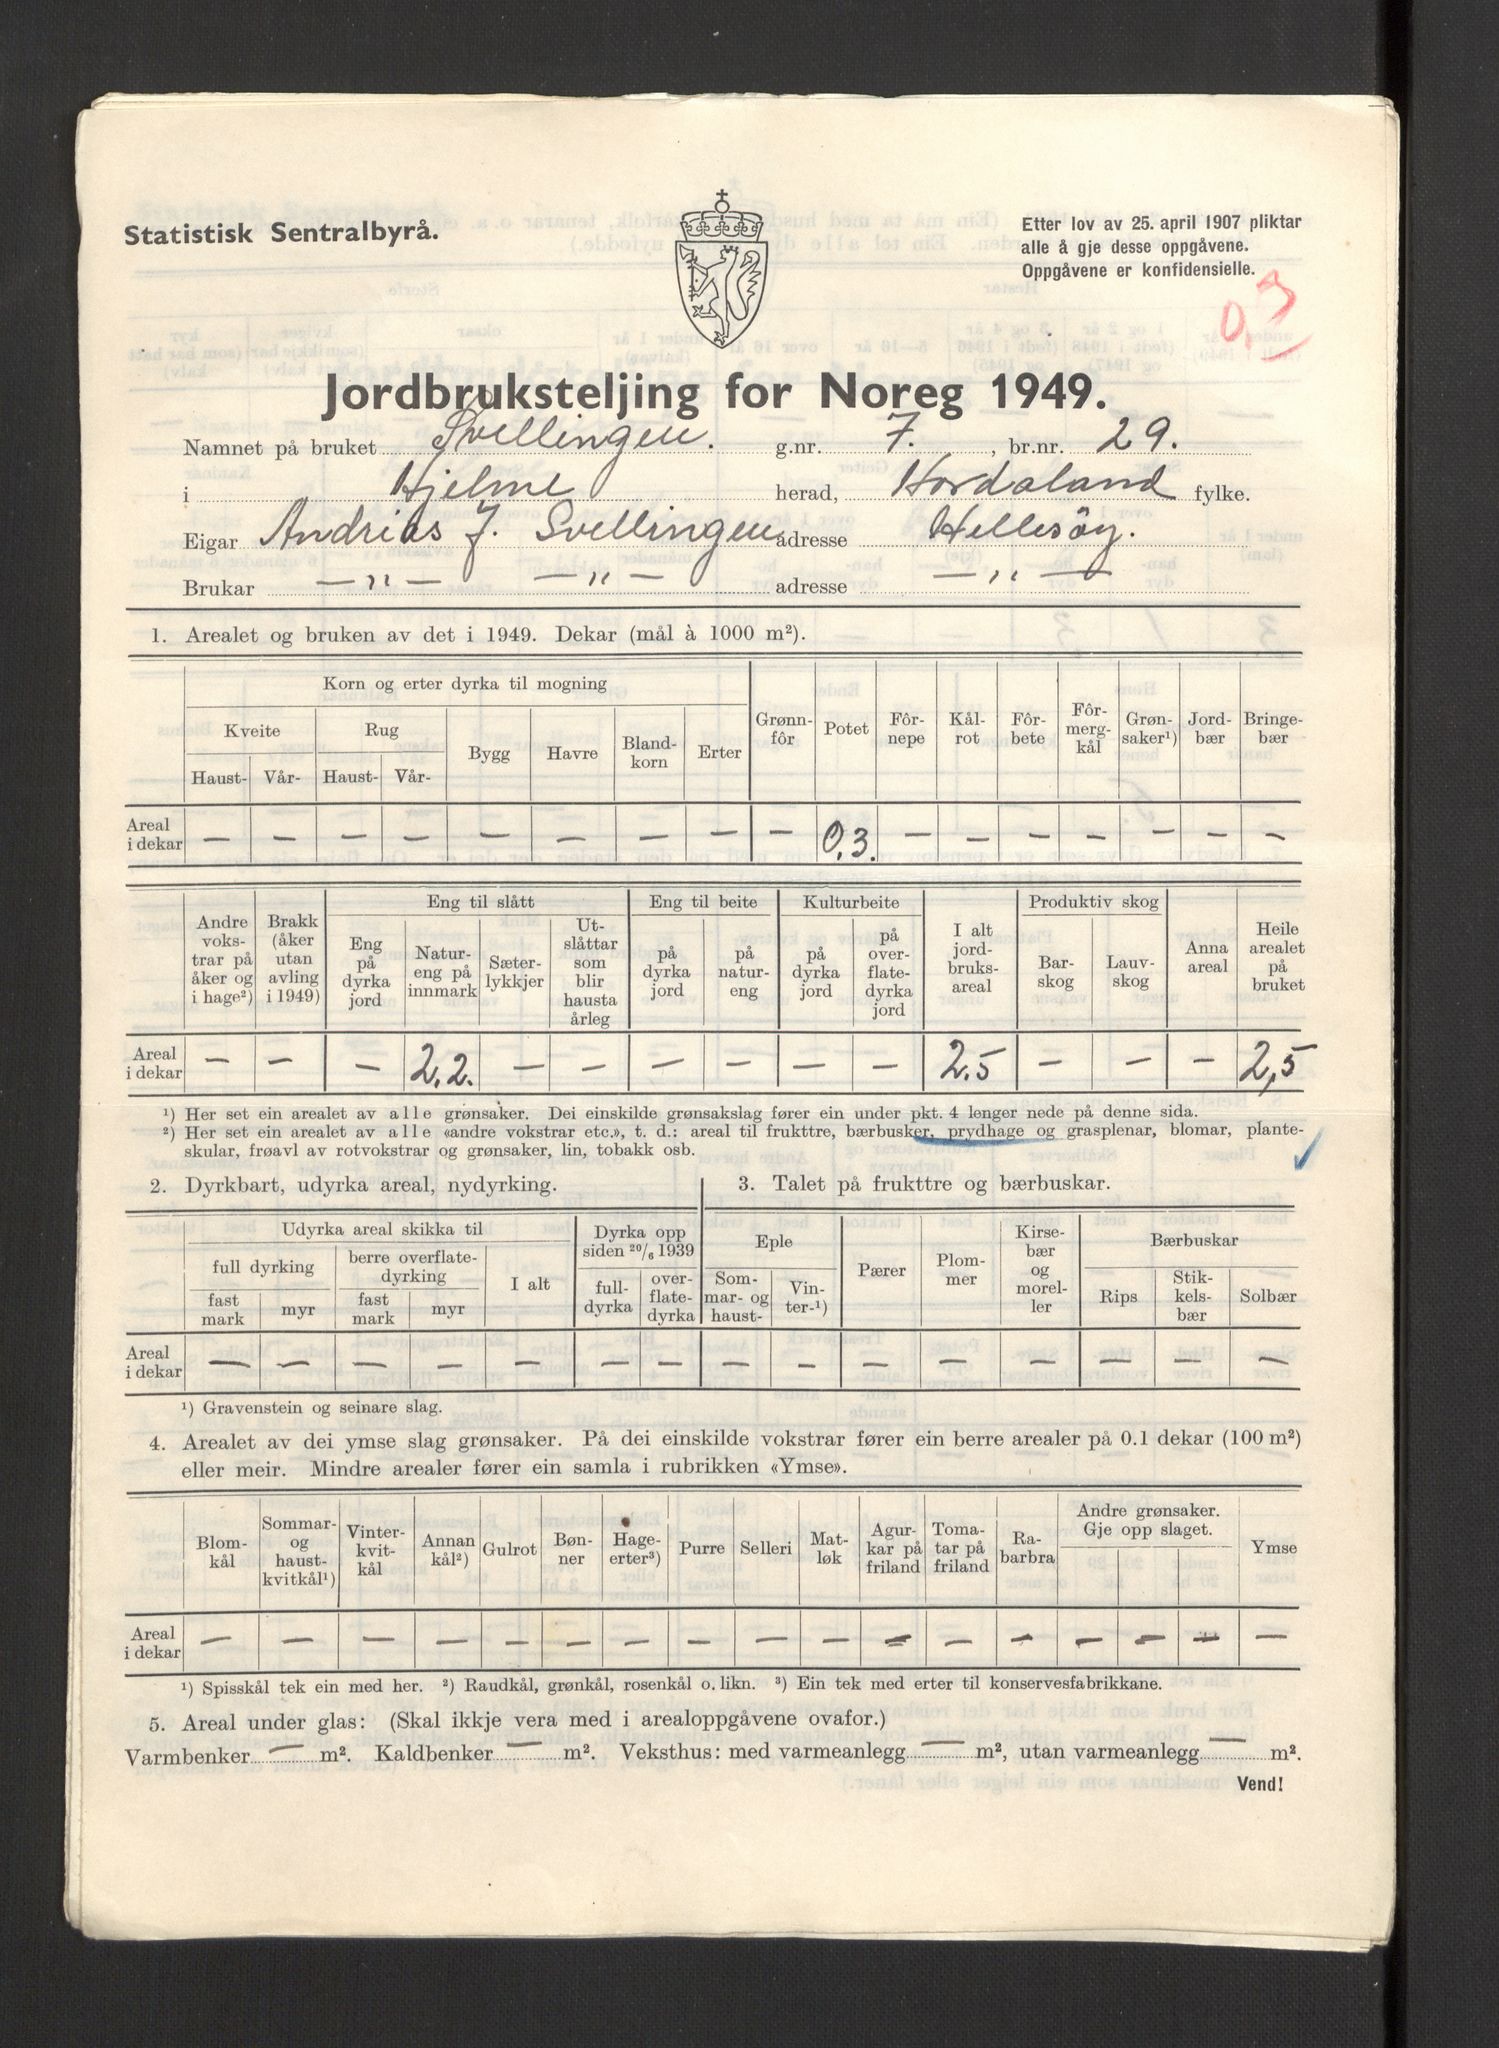 Statistisk Sentralbyrå.
Etter lov av 25. april 1907 pliktar
alle å gje desse oppgåvene.
Oppgåvene er konfidensielle.
0,3
Jordbruksteljing for Noreg 1949.
Namnet på bruket Svellingen. g.nr. 7. , br.nr. 29.
i Hjelme herad, Hordaland fylke.
Eigar Andrias J. Svellingen adresse Hellesöy.
Brukar — „ — — „ — adresse — „ —
1. Arealet og bruken av det i 1949. Dekar (mål à 1000 m²).
Korn og erter dyrka til mogning
Kveite Rug Bygg Havre Bland-korn Erter Grønn-fôr Potet Fôr-nepe Kål-rot Fôr-bete Fôr-merg-kål Grøn-saker¹) Jord-bær Bringe-bær
Haust- Vår- Haust- Vår-
Areal i dekar — — — — — — — — — 0,3. — — — — — — —
Eng til slått Eng til beite Kulturbeite Produktiv skog
Andre voks-trar på åker og i hage²) Brakk (åker utan avling i 1949) Eng på dyrka jord Natur-eng på innmark Sæter-lykkjer Ut-slåttar som blir hausta årleg på dyrka jord på natur-eng på dyrka jord på over-flate-dyrka jord I alt jord-bruks-areal Bar-skog Lauv-skog Anna areal Heile arealet på bruket
Areal i dekar — — — 2,2. — — — — — — 2.5 — — — 2,5
¹) Her set ein arealet av alle grønsaker. Dei einskilde grønsakslag fører ein under pkt. 4 lenger nede på denne sida.
²) Her set ein arealet av alle «andre vokstrar etc.», t. d.: areal til frukttre, bærbusker, prydhage og grasplenar, blomar, plante-
skular, frøavl av rotvokstrar og grønsaker, lin, tobakk osb.
2. Dyrkbart, udyrka areal, nydyrking.
3. Talet på frukttre og bærbuskar.
Udyrka areal skikka til Dyrka opp siden 20/6 1939 Eple Pærer Plom-mer Kirse-bær og morel-ler Bærbuskar
full dyrking berre overflate-dyrking I alt full-dyrka over-flate-dyrka Som-mar- og haust- Vin-ter-¹) Rips Stik-kels-bær Solbær
fast mark myr fast mark myr
Areal i dekar — — — — — — — — — — — — — — —
¹) Gravenstein og seinare slag.
4. Arealet av dei ymse slag grønsaker. På dei einskilde vokstrar fører ein berre arealer på 0.1 dekar (100 m²)
eller meir. Mindre arealer fører ein samla i rubrikken «Ymse».
Blom-kål Sommar- og haust-kvitkål¹) Vinter-kvit-kål Annan kål²) Gulrot Bøn-ner Hage-erter³) Purre Selleri Mat-løk Agur-kar på friland Toma-tar på friland Ra-barbra Andre grønsaker. Gje opp slaget. Ymse
Areal i dekar — — — — — — — — — — — — — — — — —
¹) Spisskål tek ein med her. ²) Raudkål, grønkål, rosenkål o. likn. ³) Ein tek med erter til konservesfabrikkane.
5. Areal under glas: (Skal ikkje vera med i arealoppgåvene ovafor.)
Varmbenker — m². Kaldbenker — m². Veksthus: med varmeanlegg — m², utan varmeanlegg — m².
Vend!